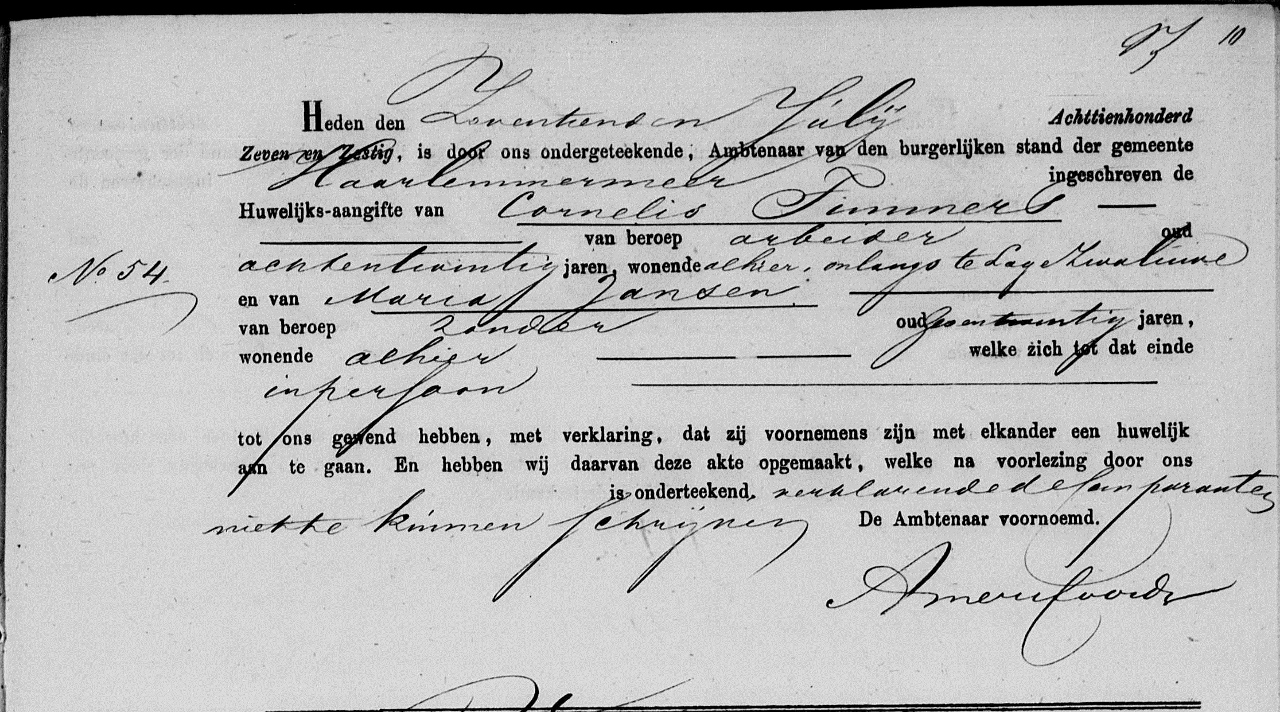 10
Heden den Zeventienden Julij Achttienhonderd
Zeven en Zestig, is door ons ondergeteekende, Ambtenaar van den burgerlijken stand der gemeente
Haarlemmermeer ingeschreven de
Huwelijks-aangifte van Cornelis Timmers
van beroep arbeider oud
No 54. achtentwintig jaren, wonende alhier, onlangs te Lage Zwaluwe
en van Maria Jansen
van beroep zonder oud zesentwintig jaren,
wonende alhier welke zich tot dat einde
in persoon
tot ons gewend hebben, met verklaring, dat zij voornemens zijn met elkander een huwelijk
aan te gaan. En hebben wij daarvan deze akte opgemaakt, welke na voorlezing door ons
is onderteekend, verklarende de Comparanten
niet te kunnen schrijven De Ambtenaar voornoemd.
Amersfoordt